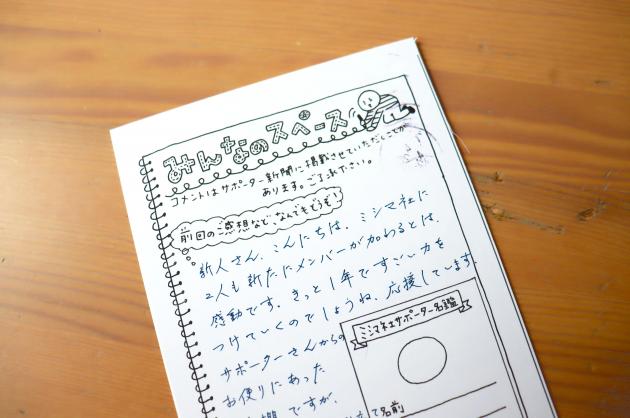 みんなのスペース
コメントはサポーター新聞に掲載させていただくことが
あります。ご了承下さい。
前回のご感想など、なんでもどうぞ!
新人さん、こんにちは。ミシマ社に
2人も新たにメンバーが加わるとは、
感動です。きっと1年ですごい力を
つけていくのでしょうね。応援しています。
サポーターさんからの
お便りにあった
ですが、
ミシマ社サポーター名鑑
名前